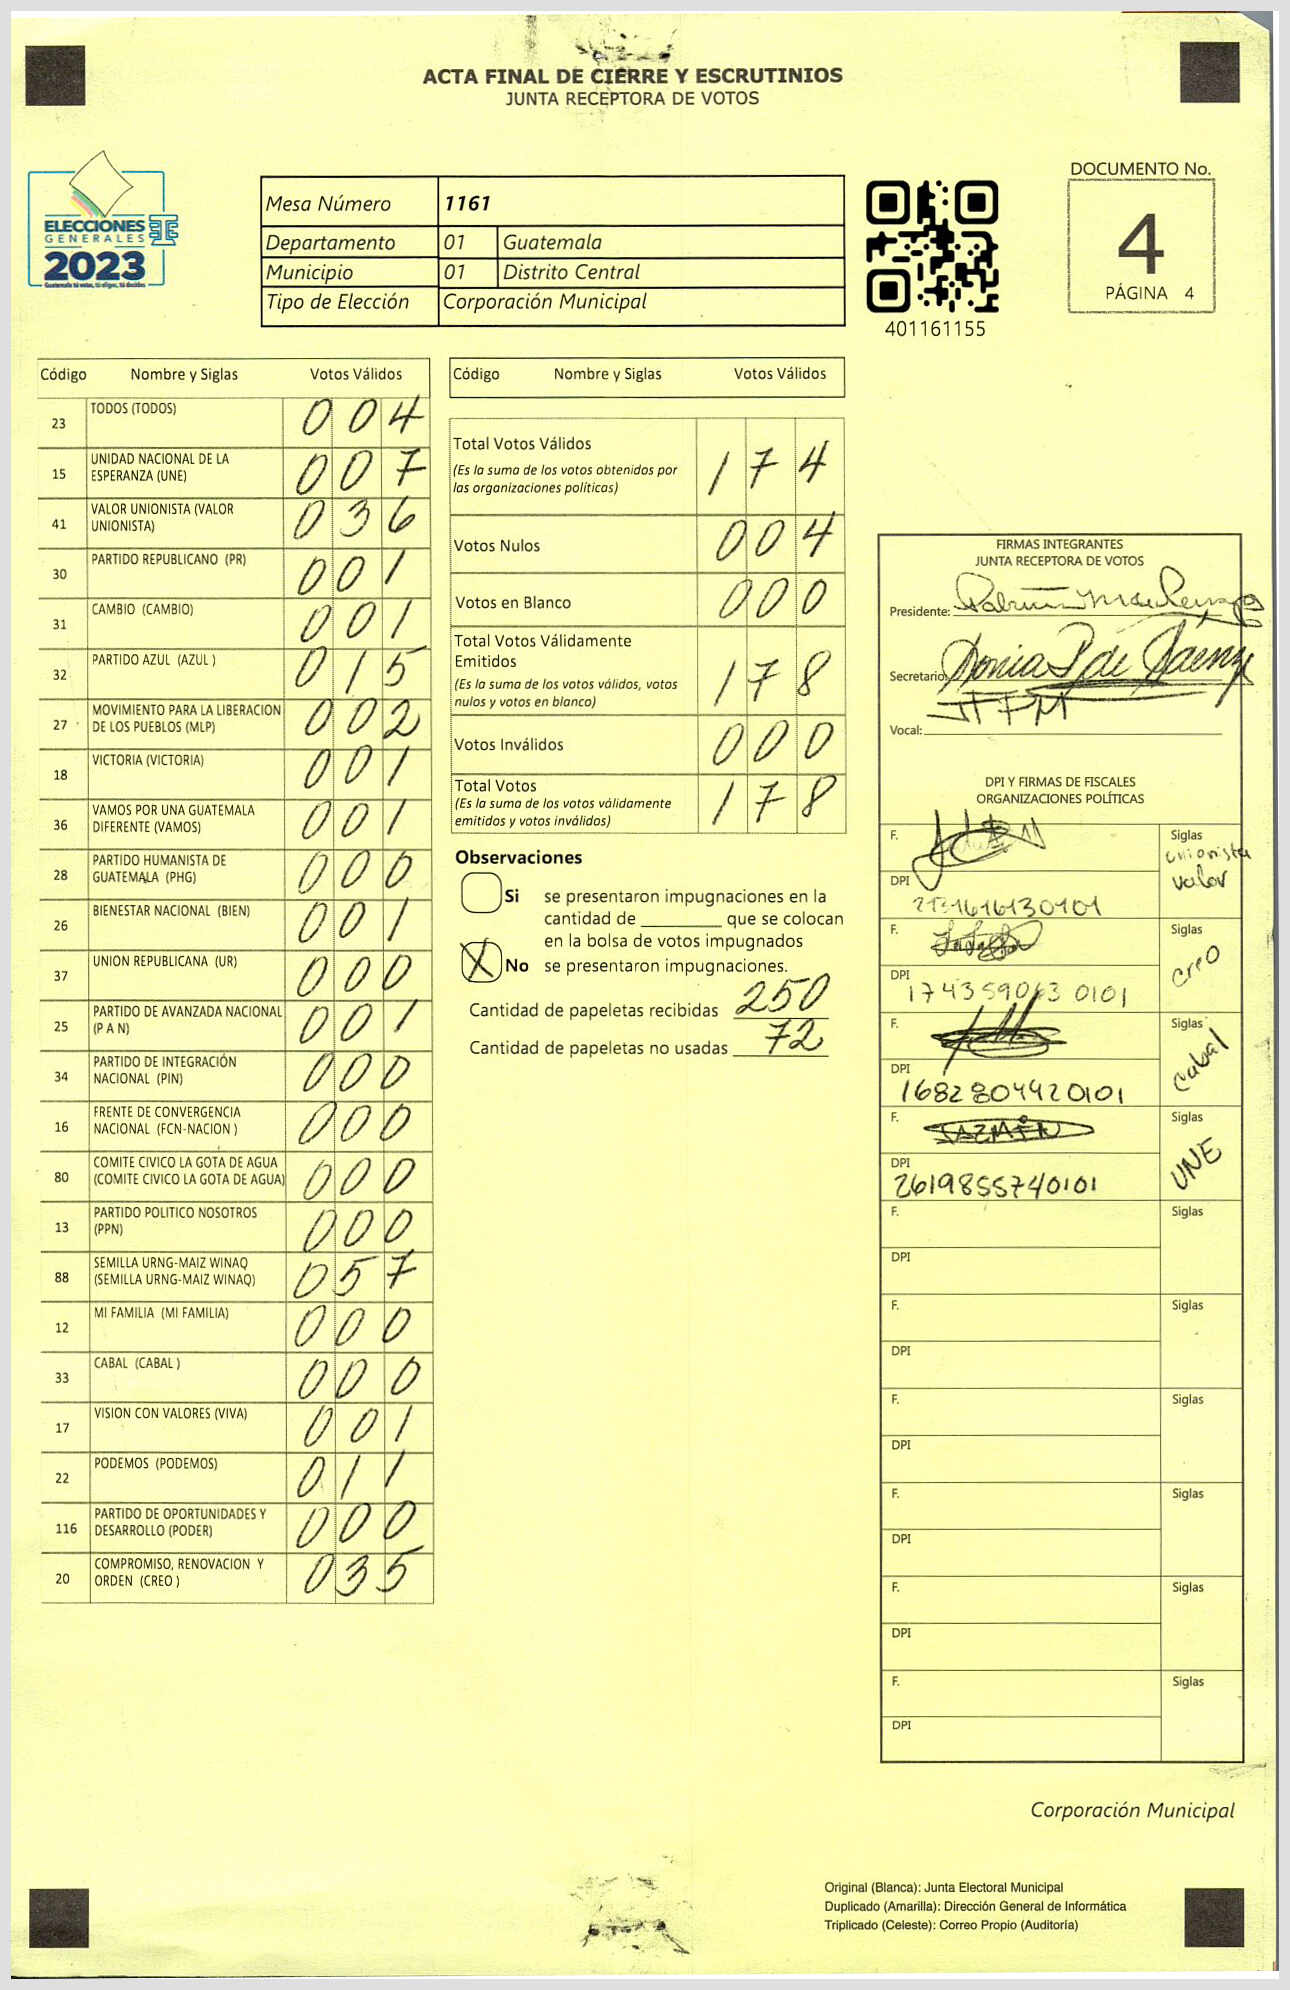 ACTA FINAL DE CIERRE Y ESCRUTINIOS
JUNTA RECEPTORA DE VOTOS
ELECCIONES
GENERALES
2023
Guatemala tú votas, tú eliges, tú decides
Mesa Número 1161
Departamento 01 Guatemala
Municipio 01 Distrito Central
Tipo de Elección Corporación Municipal
401161155
DOCUMENTO No.
4
PÁGINA 4
Código Nombre y Siglas Votos Válidos
23 TODOS (TODOS) 004
15 UNIDAD NACIONAL DE LA
ESPERANZA (UNE) 007
41 VALOR UNIONISTA (VALOR
UNIONISTA) 036
30 PARTIDO REPUBLICANO (PR) 001
31 CAMBIO (CAMBIO) 001
32 PARTIDO AZUL (AZUL ) 015
27 MOVIMIENTO PARA LA LIBERACION
DE LOS PUEBLOS (MLP) 002
18 VICTORIA (VICTORIA) 001
36 VAMOS POR UNA GUATEMALA
DIFERENTE (VAMOS) 001
28 PARTIDO HUMANISTA DE
GUATEMALA (PHG) 000
26 BIENESTAR NACIONAL (BIEN) 001
37 UNION REPUBLICANA (UR) 000
25 PARTIDO DE AVANZADA NACIONAL
(P A N) 001
34 PARTIDO DE INTEGRACIÓN
NACIONAL (PIN) 000
16 FRENTE DE CONVERGENCIA
NACIONAL (FCN-NACION ) 000
80 COMITE CIVICO LA GOTA DE AGUA
(COMITE CIVICO LA GOTA DE AGUA) 000
13 PARTIDO POLITICO NOSOTROS
(PPN) 000
88 SEMILLA URNG-MAIZ WINAQ
(SEMILLA URNG-MAIZ WINAQ) 057
12 MI FAMILIA (MI FAMILIA) 000
33 CABAL (CABAL ) 000
17 VISION CON VALORES (VIVA) 001
22 PODEMOS (PODEMOS) 011
116 PARTIDO DE OPORTUNIDADES Y
DESARROLLO (PODER) 000
20 COMPROMISO, RENOVACION Y
ORDEN (CREO ) 035
Código Nombre y Siglas Votos Válidos
Total Votos Válidos 174
(Es la suma de los votos obtenidos por
las organizaciones políticas)
Votos Nulos 004
Votos en Blanco 000
Total Votos Válidamente
Emitidos 178
(Es la suma de los votos válidos, votos
nulos y votos en blanco)
Votos Inválidos 000
Total Votos 178
(Es la suma de los votos válidamente
emitidos y votos inválidos)
Observaciones
Si se presentaron impugnaciones en la
cantidad de ________ que se colocan
en la bolsa de votos impugnados
X No se presentaron impugnaciones.
Cantidad de papeletas recibidas 250
Cantidad de papeletas no usadas 72
FIRMAS INTEGRANTES
JUNTA RECEPTORA DE VOTOS
Presidente:
Secretario: Sonia P de Sáenz
Vocal: JFPM
DPI Y FIRMAS DE FISCALES
ORGANIZACIONES POLÍTICAS
F. Siglas
unionista
valor
DPI
F. Siglas
creo
DPI
F. Siglas
cabal
DPI 1682804420101
F. JAZMÍN Siglas
UNE
DPI 2619855740101
F. Siglas
DPI
F. Siglas
DPI
F. Siglas
DPI
F. Siglas
DPI
F. Siglas
DPI
F. Siglas
DPI
Corporación Municipal
Original (Blanca): Junta Electoral Municipal
Duplicado (Amarilla): Dirección General de Informática
Triplicado (Celeste): Correo Propio (Auditoría)